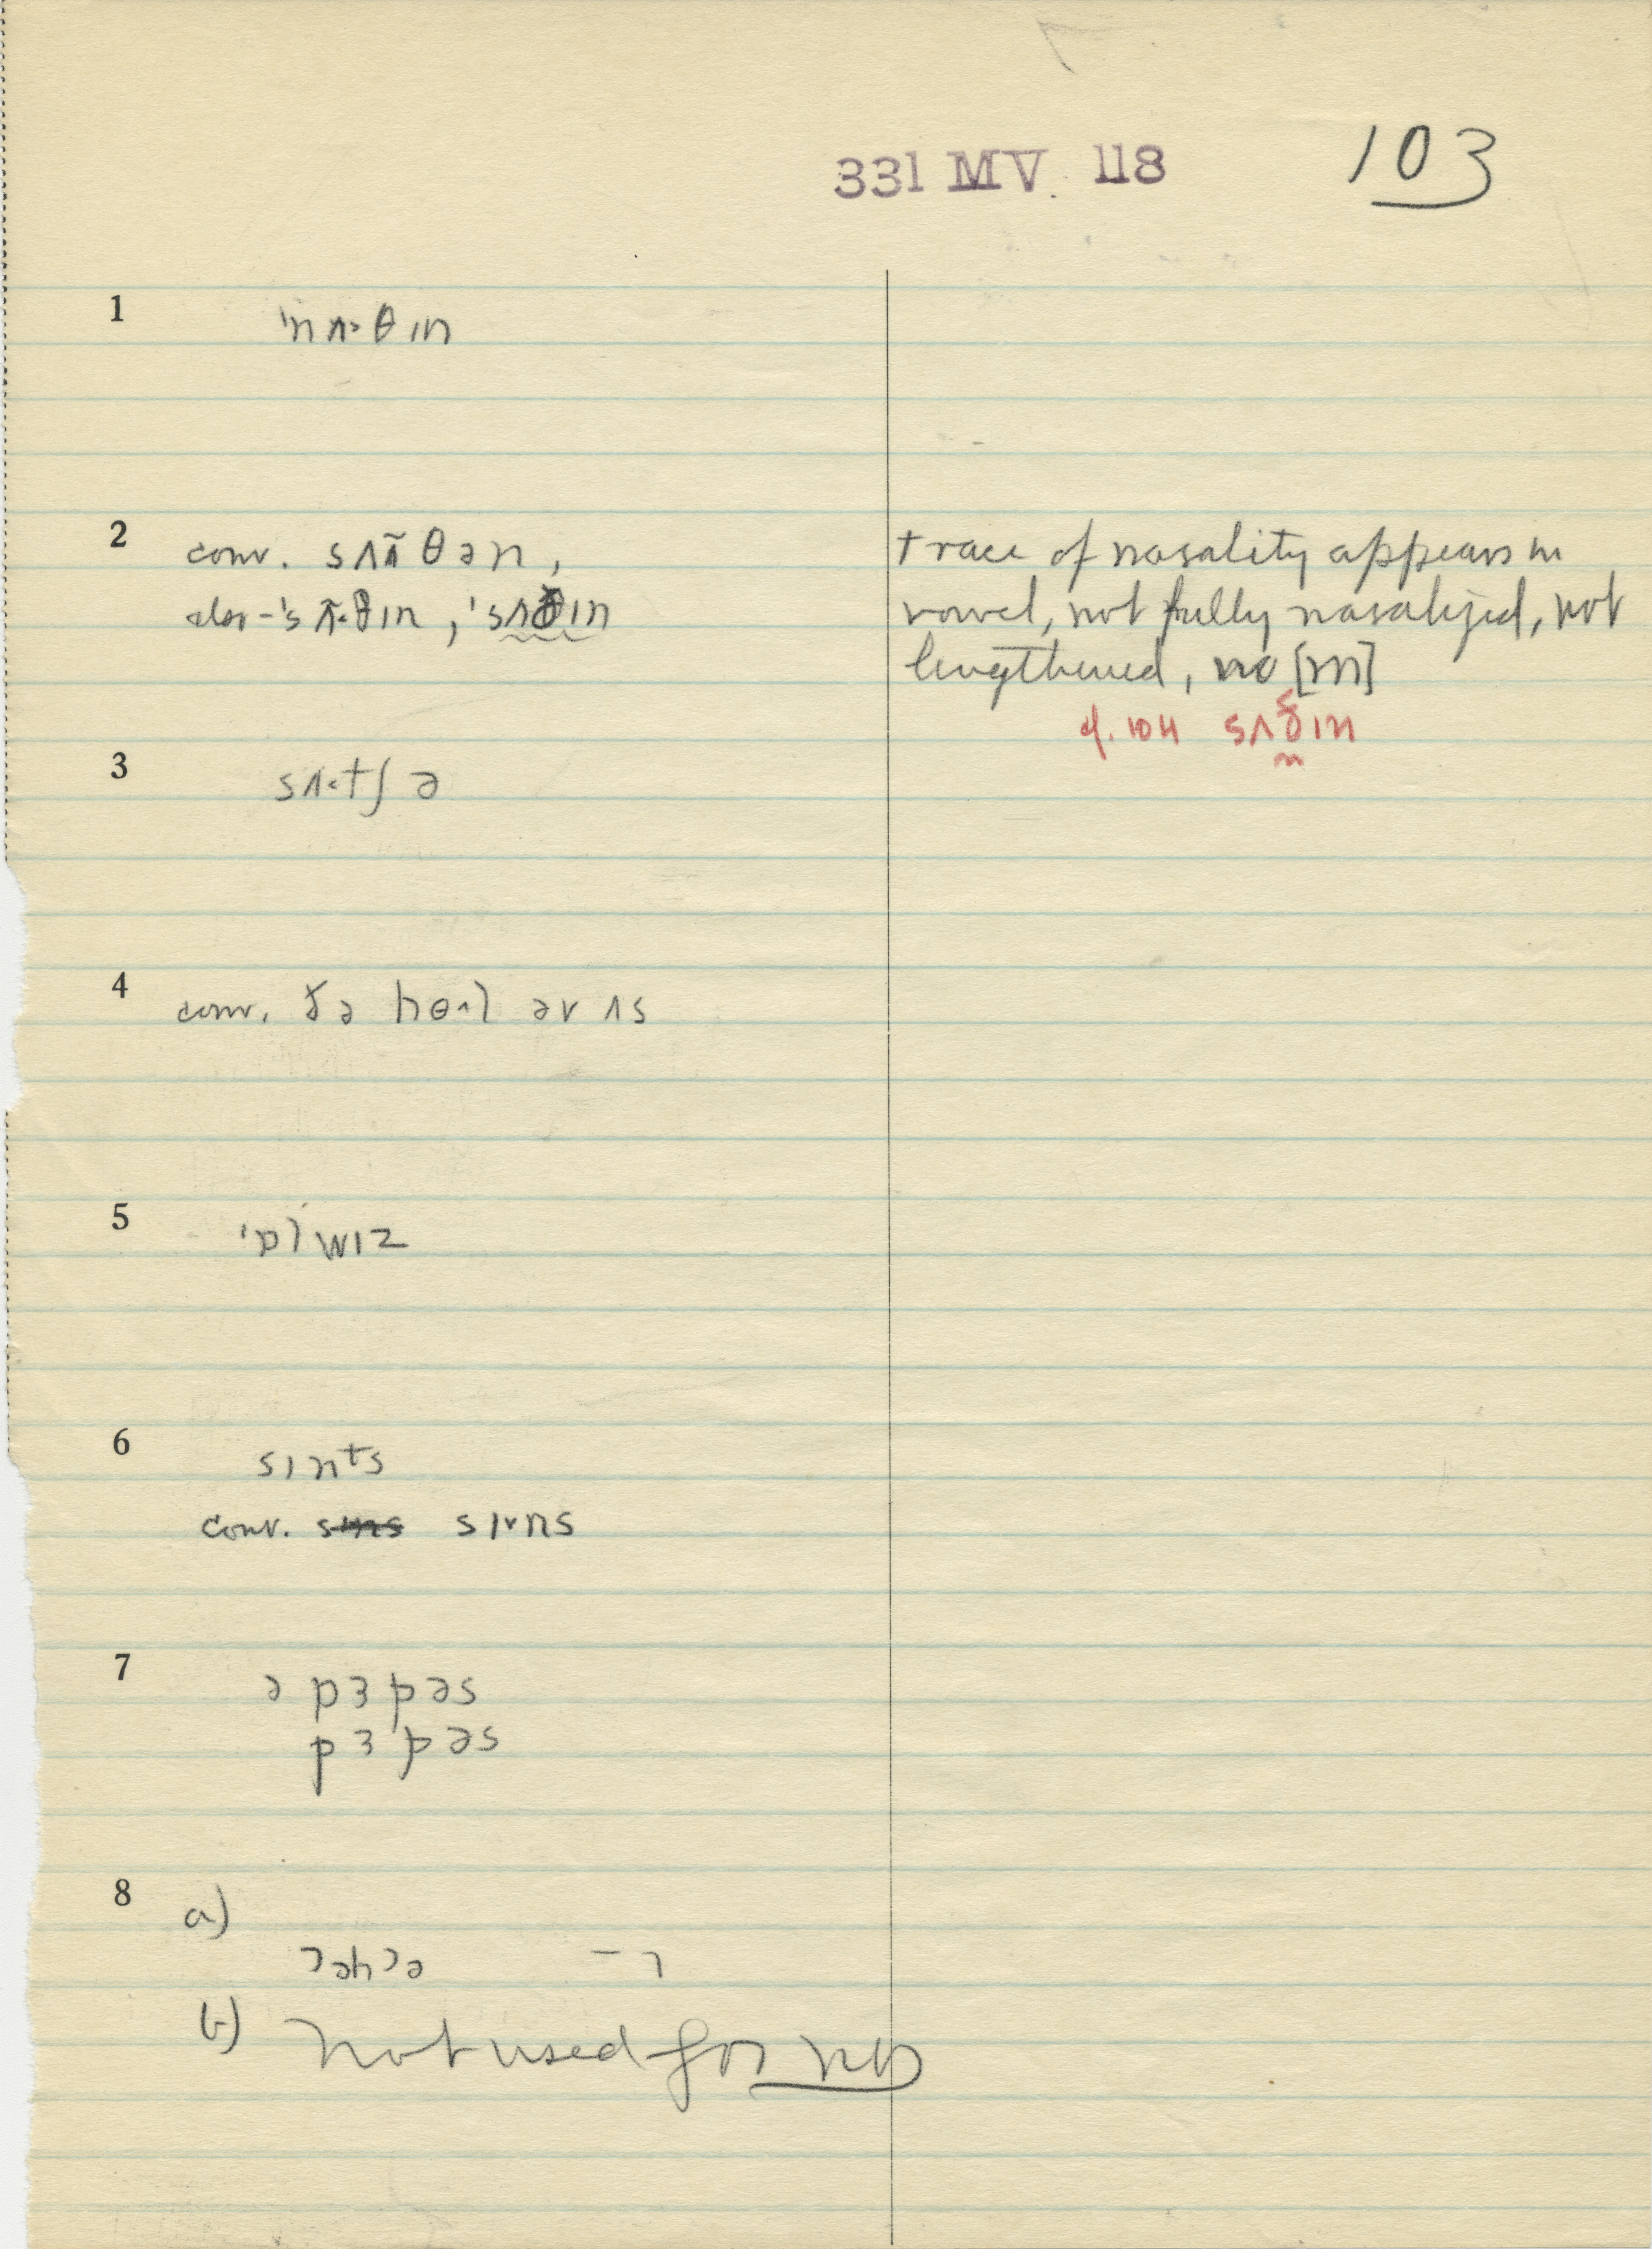 331 MV. 118 103
1 'nʌ·θɪn
2 conv. sʌʌ̃θən,
also - 'sʌ̃·θɪn, 'sʌðɪn
trace of nasality appears in
vowel, not fully nasalized, not
lengthened, no [m]
cf. 104 sʌðɪn
3 sʌ·tʃə
4 conv. ðə hol əv ʌs
5 'ɒlwɪz
6 sɪnᵗs
conv. sɪ˅ns
7 ə pɜpəs
pɜpəs
8 a)
ʔəhʔə
b) Not used for no